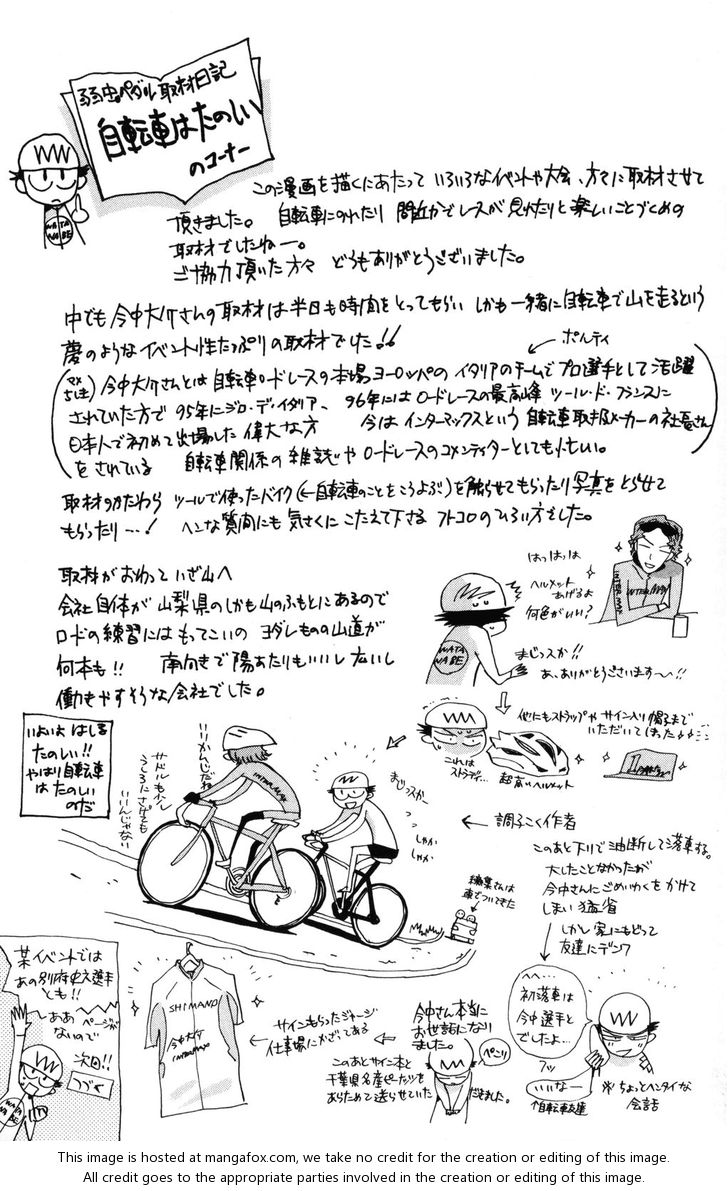 弱虫ペダル取材日記
自転車はたのしい
のコーナー
この漫画を描くにあたって いろいろなイベントや大会、方々に取材させて
頂きました。 自転車にのれたり 間近かでレースが見れたりと楽しいことづくめの
取材でしたねー。
ご協力頂いた方々 どうもありがとうございました。
中でも今中大介さんの取材は半日も時間をとってもらい しかも一緒に自転車で山を走るという
夢のようなイベント性たっぷりの取材でした!!
ポルティ
今中大介さんとは自転車ロードレースの本場ヨーロッパの イタリアのチームでプロ選手として活躍
されていた方で 95年にジロ・デ・イタリア、 96年にはロードレースの最高峰 ツール・ド・フランスに
日本人で初めて出場した偉大な方 今はインターマックスという 自転車取扱メーカーの社長さん
をされている 自転車関係の雑誌やロードレースのコメンテイターとしても忙しい。
取材のかたわら ツールで使ったバイク(←自転車のことをこうよぶ)を触らせてもらったり写真をとらせて
もらったり…! ヘンな質問にも 気さくにこたえて下さる フトコロのひろい方でした。
取材がおわって いざ山へ
会社自体が山梨県のしかも山のふもとにあるので
ロードの練習にはもってこいの ヨダレものの山道が
何本も!! 南向きで陽あたりもいいし広いし
働きやすそうな会社でした。
はっはっは
ヘルメット
あげるよ
何色がいい?
INTERMAX
WATA
NABE
まじっスか!!
あ、ありがとうございます〜!!
他にもストラップや サイン入り帽子まで
いただいてしまった
これは
ストラップ…
超高いヘルメット
いよいよ はしる
たのしい!!
やはり自転車
はたのしい
のだ
いいかんじだね
サドルもう少し
うしろにさげても
いいんじゃない
まじっスかー
しゃか
しゃか
← 調子こく作者
このあと下りで油断して落車する。
大したことなかったが
今中さんにごめいわくをかけて
しまい 猛省
しかし家にもどって
友達にデンワ
編集さんは
車でついてきた
へへ…
初落車は
今中選手と
でしたよ…
フッ
いいなー
自転車友達
※ちょっとヘンタイな
会話
某イベントでは
あの別府史之選手
とも!!
ああ ページが
ないので
次回!!
つづく
WATA
NABE
SHIMANO
今中大介
INTERMAX
← サインもらったジャージ
仕事場にかざってある
今中さん本当に
お世話になり
ました。
ぺこり
このあとサイン本と
千葉県名産ピーナッツを
あらためて送らせていただきました。
This image is hosted at mangafox.com, we take no credit for the creation or editing of this image.
All credit goes to the appropriate parties involved in the creation or editing of this image.